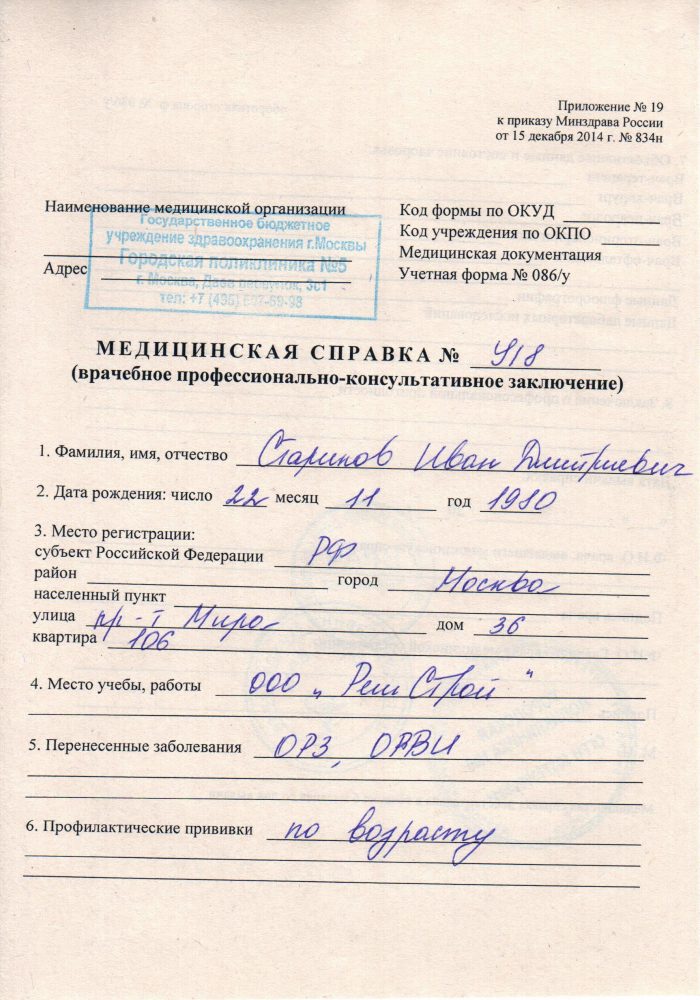 Приложение № 19
к приказу Минздрава России
от 15 декабря 2014 г. № 834н
Наименование медицинской организации
Государственное бюджетное
учреждение здравоохранения г.Москвы
Городская поликлиника №5
г. Москва, Даев переулок, 3с1
тел: +7 (495)
Адрес
Код формы по ОКУД
Код учреждения по ОКПО
Медицинская документация
Учетная форма № 086/у
МЕДИЦИНСКАЯ СПРАВКА № 418
(врачебное профессионально-консультативное заключение)
1. Фамилия, имя, отчество Старинов Иван Дмитриевич
2. Дата рождения: число 22 месяц 11 год 1980
3. Место регистрации:
субъект Российской Федерации РФ
район город Москва
населенный пункт
улица пр-т Мира дом 36
квартира 106
4. Место учебы, работы ООО „РемСтрой"
5. Перенесенные заболевания ОРЗ, ОРВИ
6. Профилактические прививки по возрасту